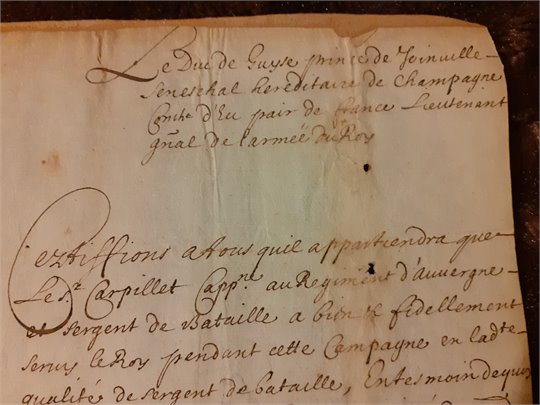 Le Duc de Guyse prince de Joinville
seneschal hereditaire de Champagne
Comte d'Eu pair de france Lieutenant
gnal de l'armée du Roy
Certiffions a tous quil appartiendra que
Le Sr Carpillet Cappne au Regiment d'auvergne
et sergent de Bataille a bien & fidellement
seruy le Roy pendant cette Campagne en ladte
qualité de sergent de bataille, En tesmoin de quoy